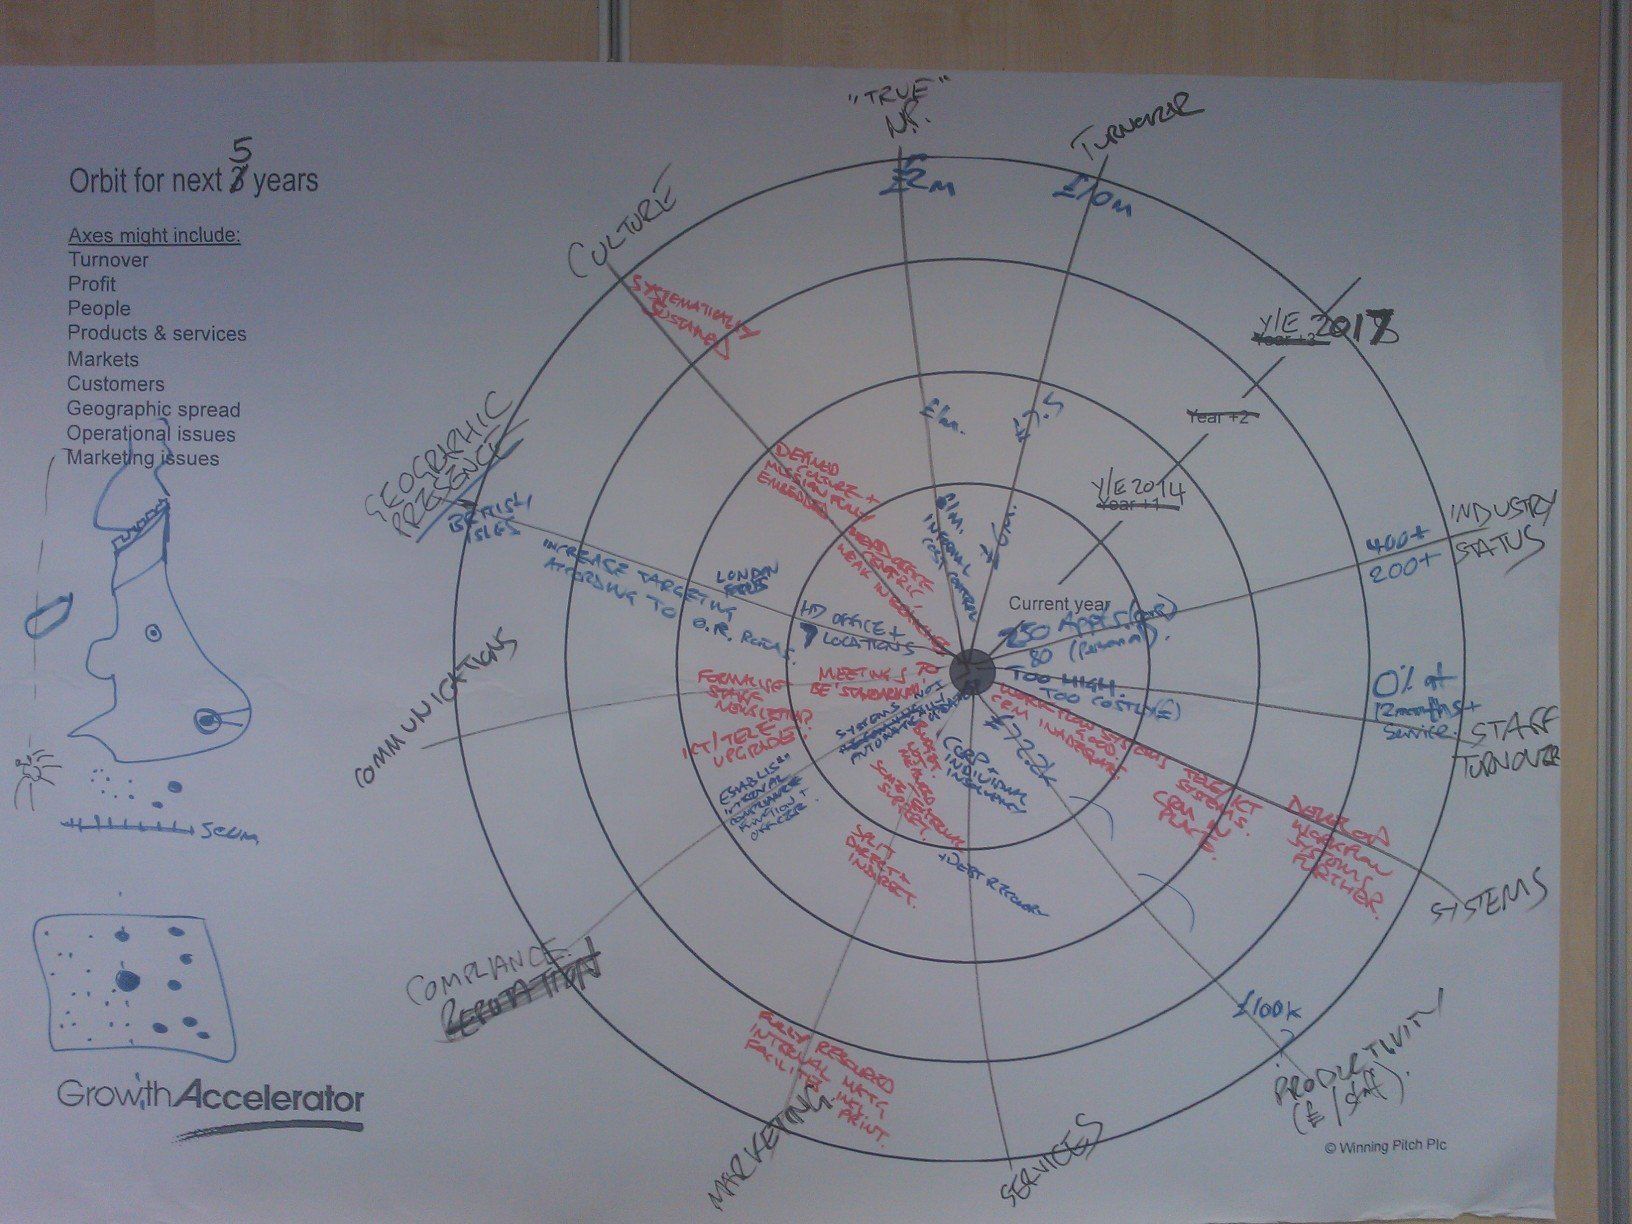 Orbit for next 5 years
Axes might include:
Turnover
Profit
People
Products & services
Markets
Customers
Geographic spread
Operational issues
Marketing issues
5cum
GrowthAccelerator
"TRUE"
N.P.
£2m
£1m.
TURNOVER
£10m
£7.5
£6m.
Y/E 2017
Year +3
Year +2
Y/E 2014
Year +1
Current year
INDUSTRY
STATUS
400+
200+
250 Appts.
80
STAFF
TURNOVER
0% at
12 months+
Service.
TOO HIGH.
TOO COSTLY(£)
SYSTEMS
WORKFLOW SYSTEMS
GOOD
CRM INADEQUATE
TELE/ICT
SYSTEMS.
CRM IN
PLACE.
DEVELOP
WORKFLOW
SYSTEMS
FURTHER.
PRODUCTIVITY
(£/staff).
£72.2k
£100k
SERVICES
CORP +
INDIVIDUAL
INSOLVENCY
+DEBT RECOVERY
MARKETING
SOME EXTERNAL
SUPPORT.
SPLIT
DIRECT +
INDIRECT.
FULLY RESOURCED
INTERNAL MKTG
FACILITIES INCL.
PRINT.
COMPLIANCE.
REPUTATION
SYSTEMS NOT
AUTOMATICALLY
UPDATED
ESTABLISH
INTERNAL
COMPLIANCE
FUNCTION +
OFFICER.
COMMUNICATIONS
MEETINGS TO
BE 'STANDARDISED'
FORMALISE
STAFF
NEWSLETTER?
ICT/TELE
UPGRADE.
GEOGRAPHIC
PRESENCE
BRITISH
ISLES
INCREASE TARGETING
ACCORDING TO O.R. ROTAS.
LONDON
HD OFFICE +
7 LOCATIONS
CULTURE
SYSTEMATICALLY
SUSTAINED
DEFINED
CULTURE +
MISSION FULLY
EMBEDDED
© Winning Pitch Plc